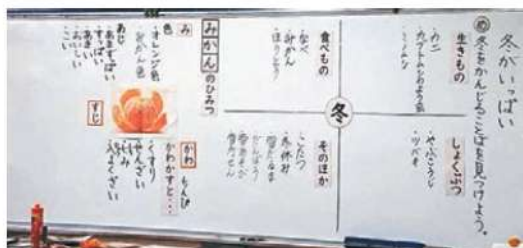 冬がいっぱい
め 冬をかんじることばを見つけよう。
生きもの
カニ
カブトムシのよう虫
ミノムシ
しょくぶつ
やぶこうじ
ツバキ
冬
食べもの
なべ
みかん
ほうとう
そのほか
こたつ
冬休み
雪だるま
かんぱう
雪あそび
みかんのひみつ
み
色
オレンジ色
みかん色
あじ
あますっぱい
すっぱい
あまい
おいしい
こい
すじ
かわ ちんぴ
かわかすと・・・
くすり
せんざい